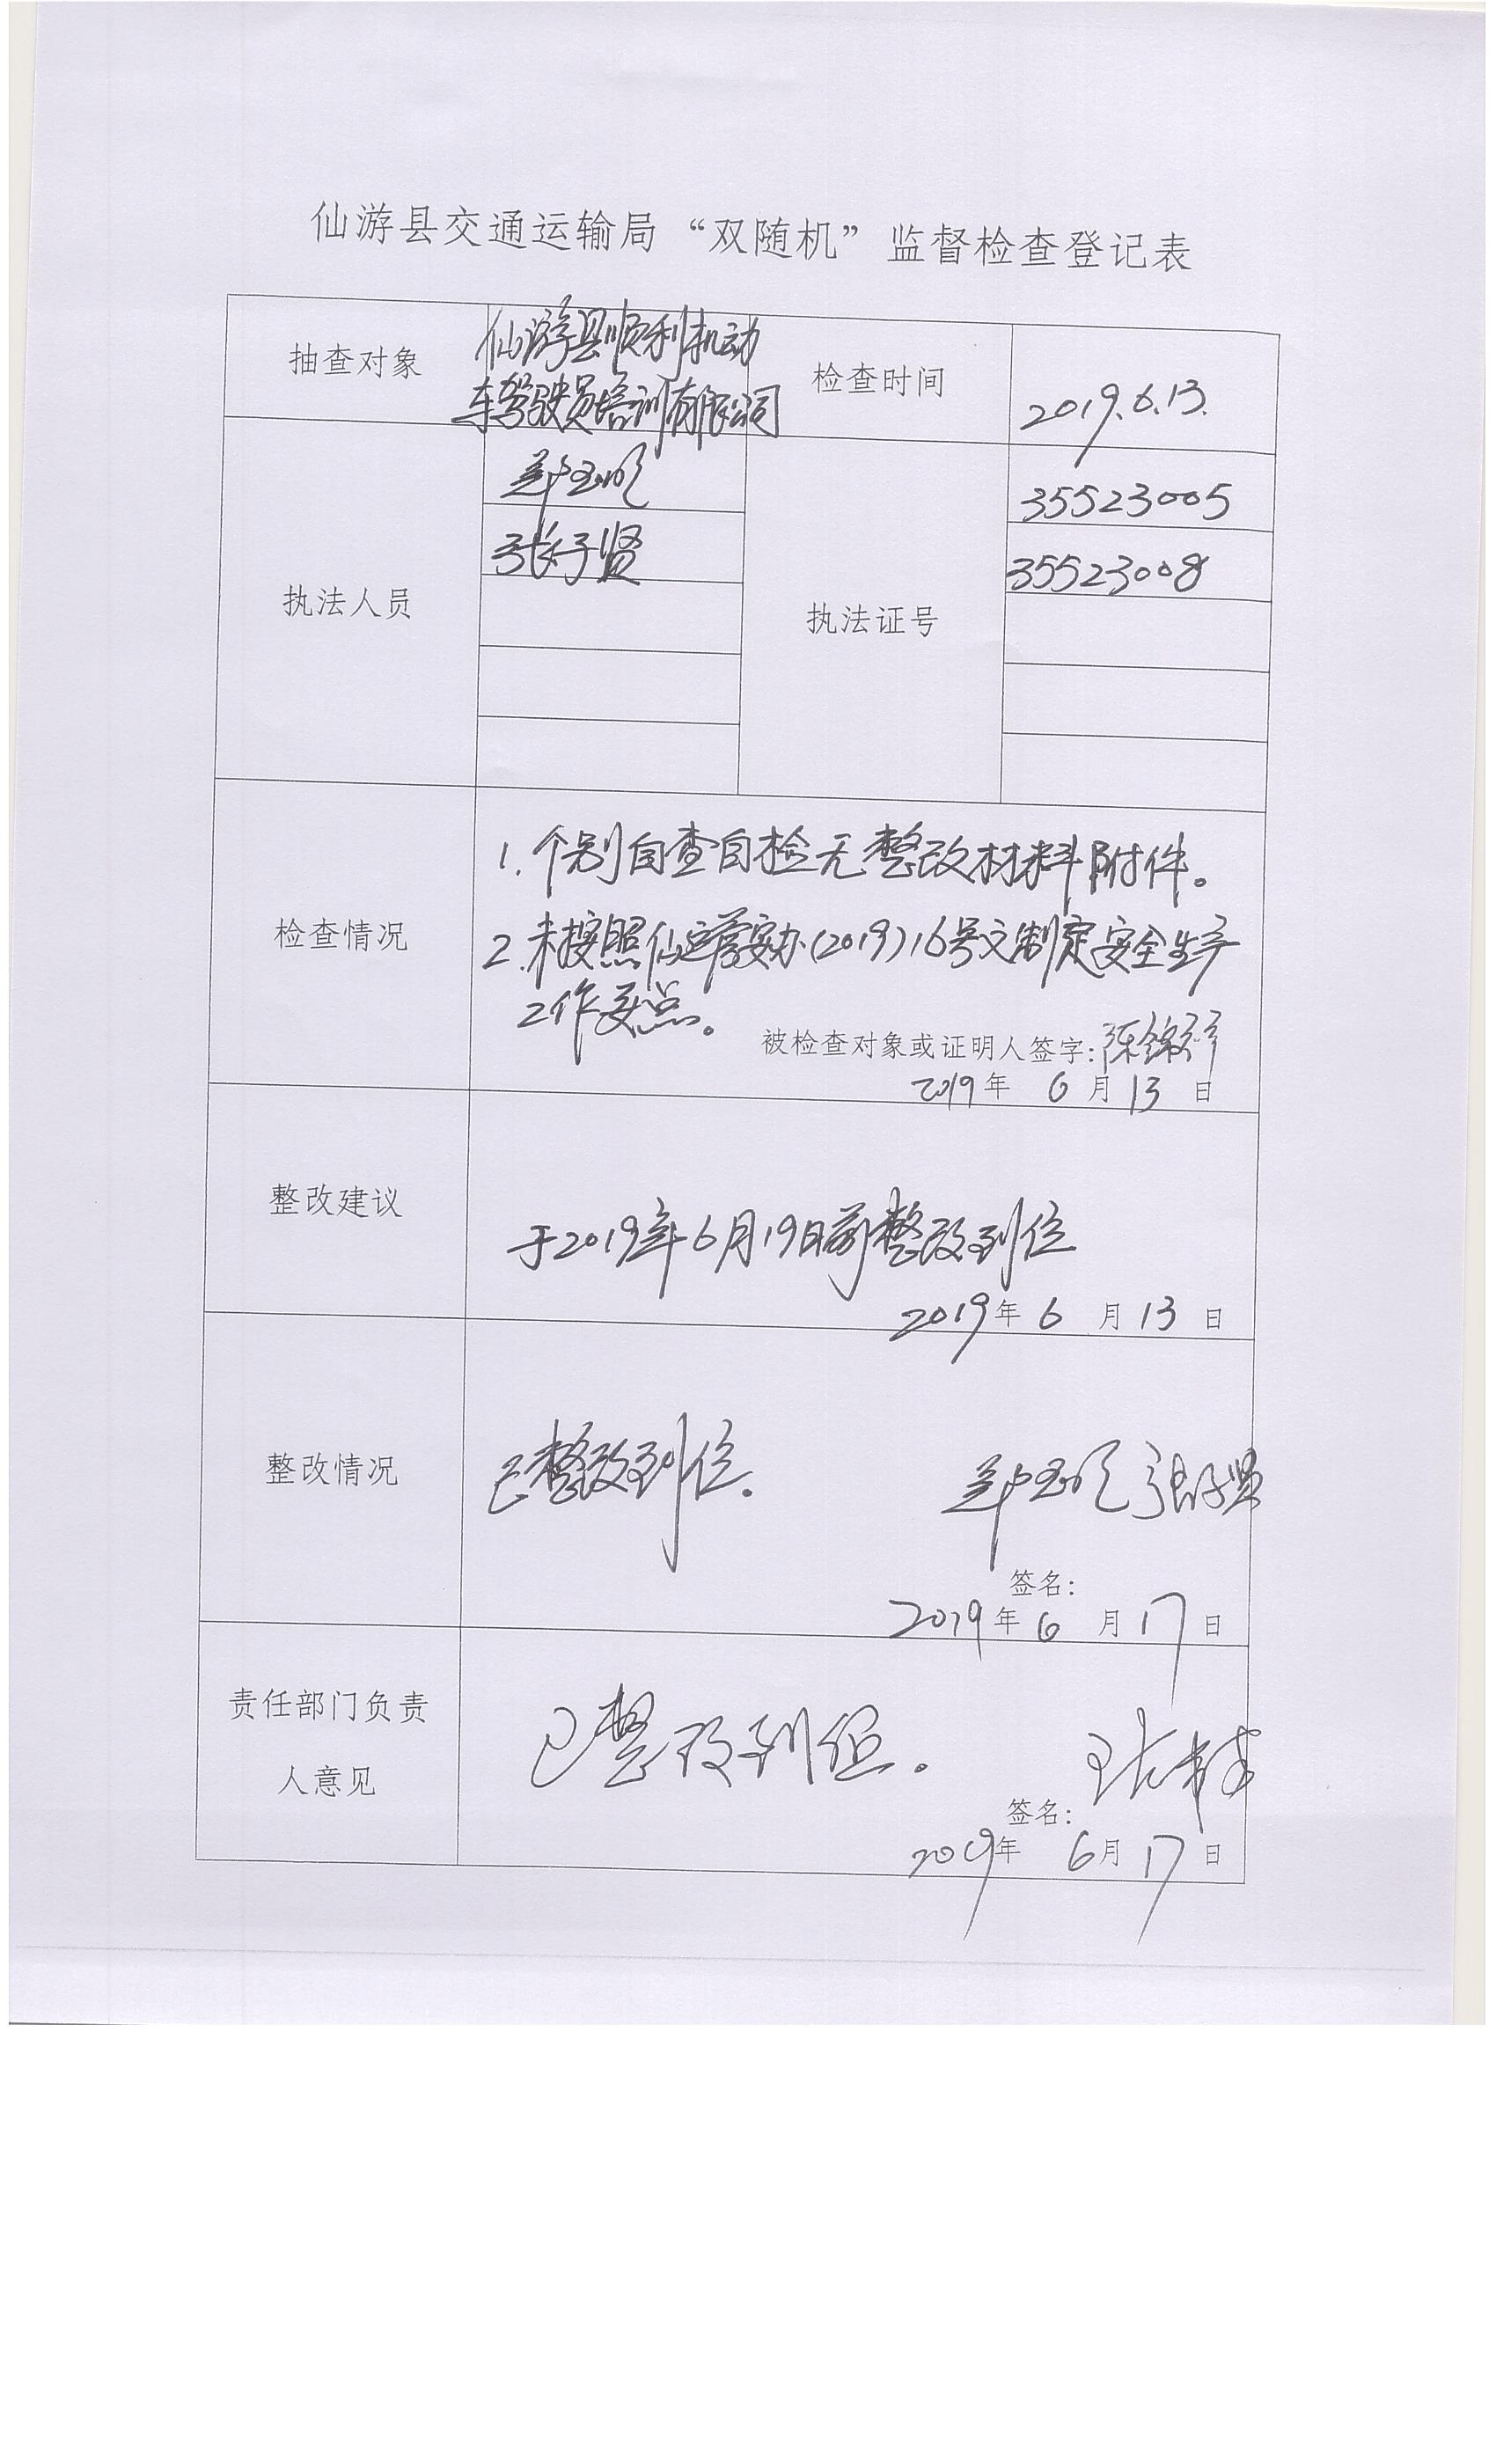 仙游县交通运输局“双随机”监督检查登记表
抽查对象
仙游县顺利机动
车驾驶员培训有限公司
检查时间
2019.6.13.
执法人员
张子贤
执法证号
35523005
35523008
检查情况
1.个别自查自检无整改材料附件。
2.未按照仙运管安办(2019)16号文制定安全生产
工作要点。
被检查对象或证明人签字:陈锦
2019年6月13日
整改建议
于2019年6月19日前整改到位
2019年6月13日
整改情况
已整改到位。
张子贤
签名:
2019年6月17日
责任部门负责
人意见
已整改到位。
签名:
2019年6月17日